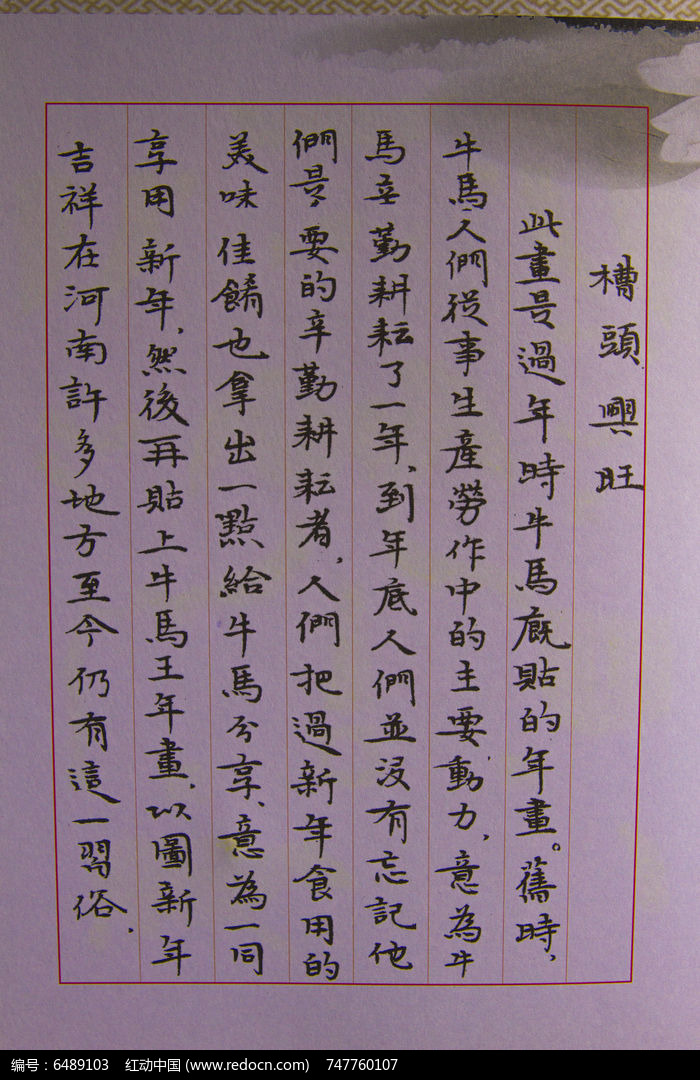 槽頭興旺
此畫是過年時牛馬廄貼的年畫。舊時，
牛馬人們從事生產勞作中的主要動力，意為牛
馬辛勤耕耘了一年，到年底人們並沒有忘記他
們是，要的辛勤耕耘者，人們把過新年食用的
美味佳餚也拿出一點給牛馬分享、意為一同
享用新年，然後再貼上牛馬王年畫，以圖新年
吉祥在河南許多地方至今仍有這一習俗，
编号：6489103 红动中国 (www.redocn.com) 747760107